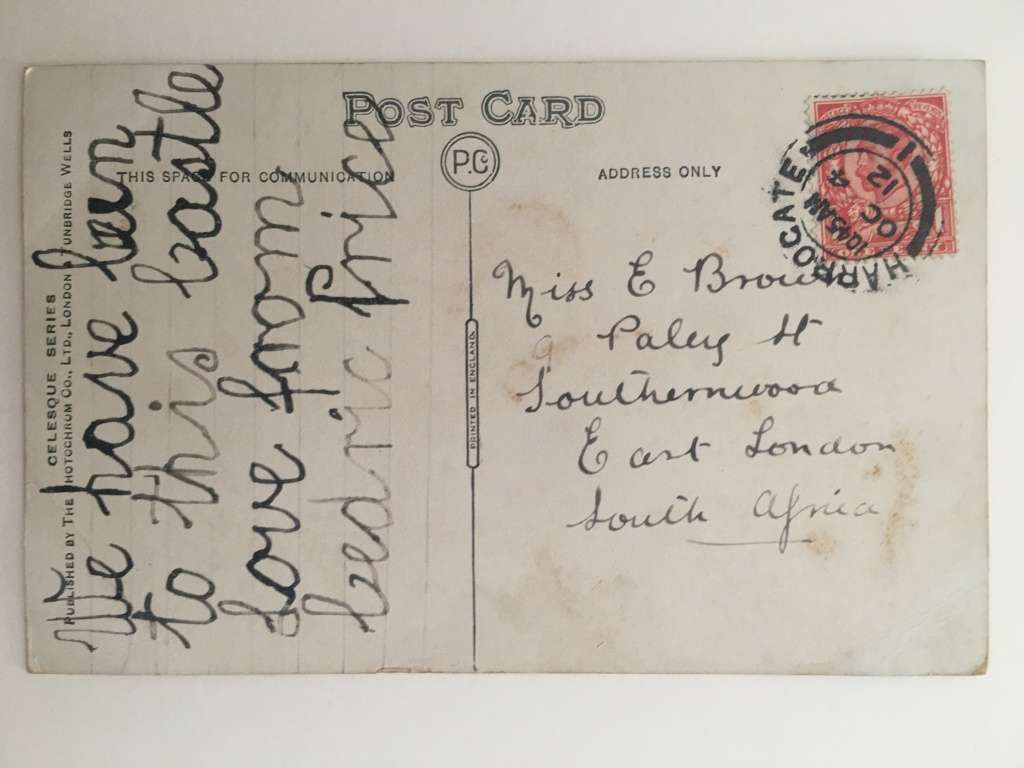 POST CARD
THIS SPACE FOR COMMUNICATION
P.C.
ADDRESS ONLY
HARROGATE
1
10.45 AM
OC 4
12
CELESQUE SERIES
PUBLISHED BY THE PHOTOCHROM CO., LTD., LONDON & TUNBRIDGE WELLS
PRINTED IN ENGLAND
We have been
to this castle
love from
cedric price
Miss E Brown
9 Paley St
Southernwood
East London
South Africa